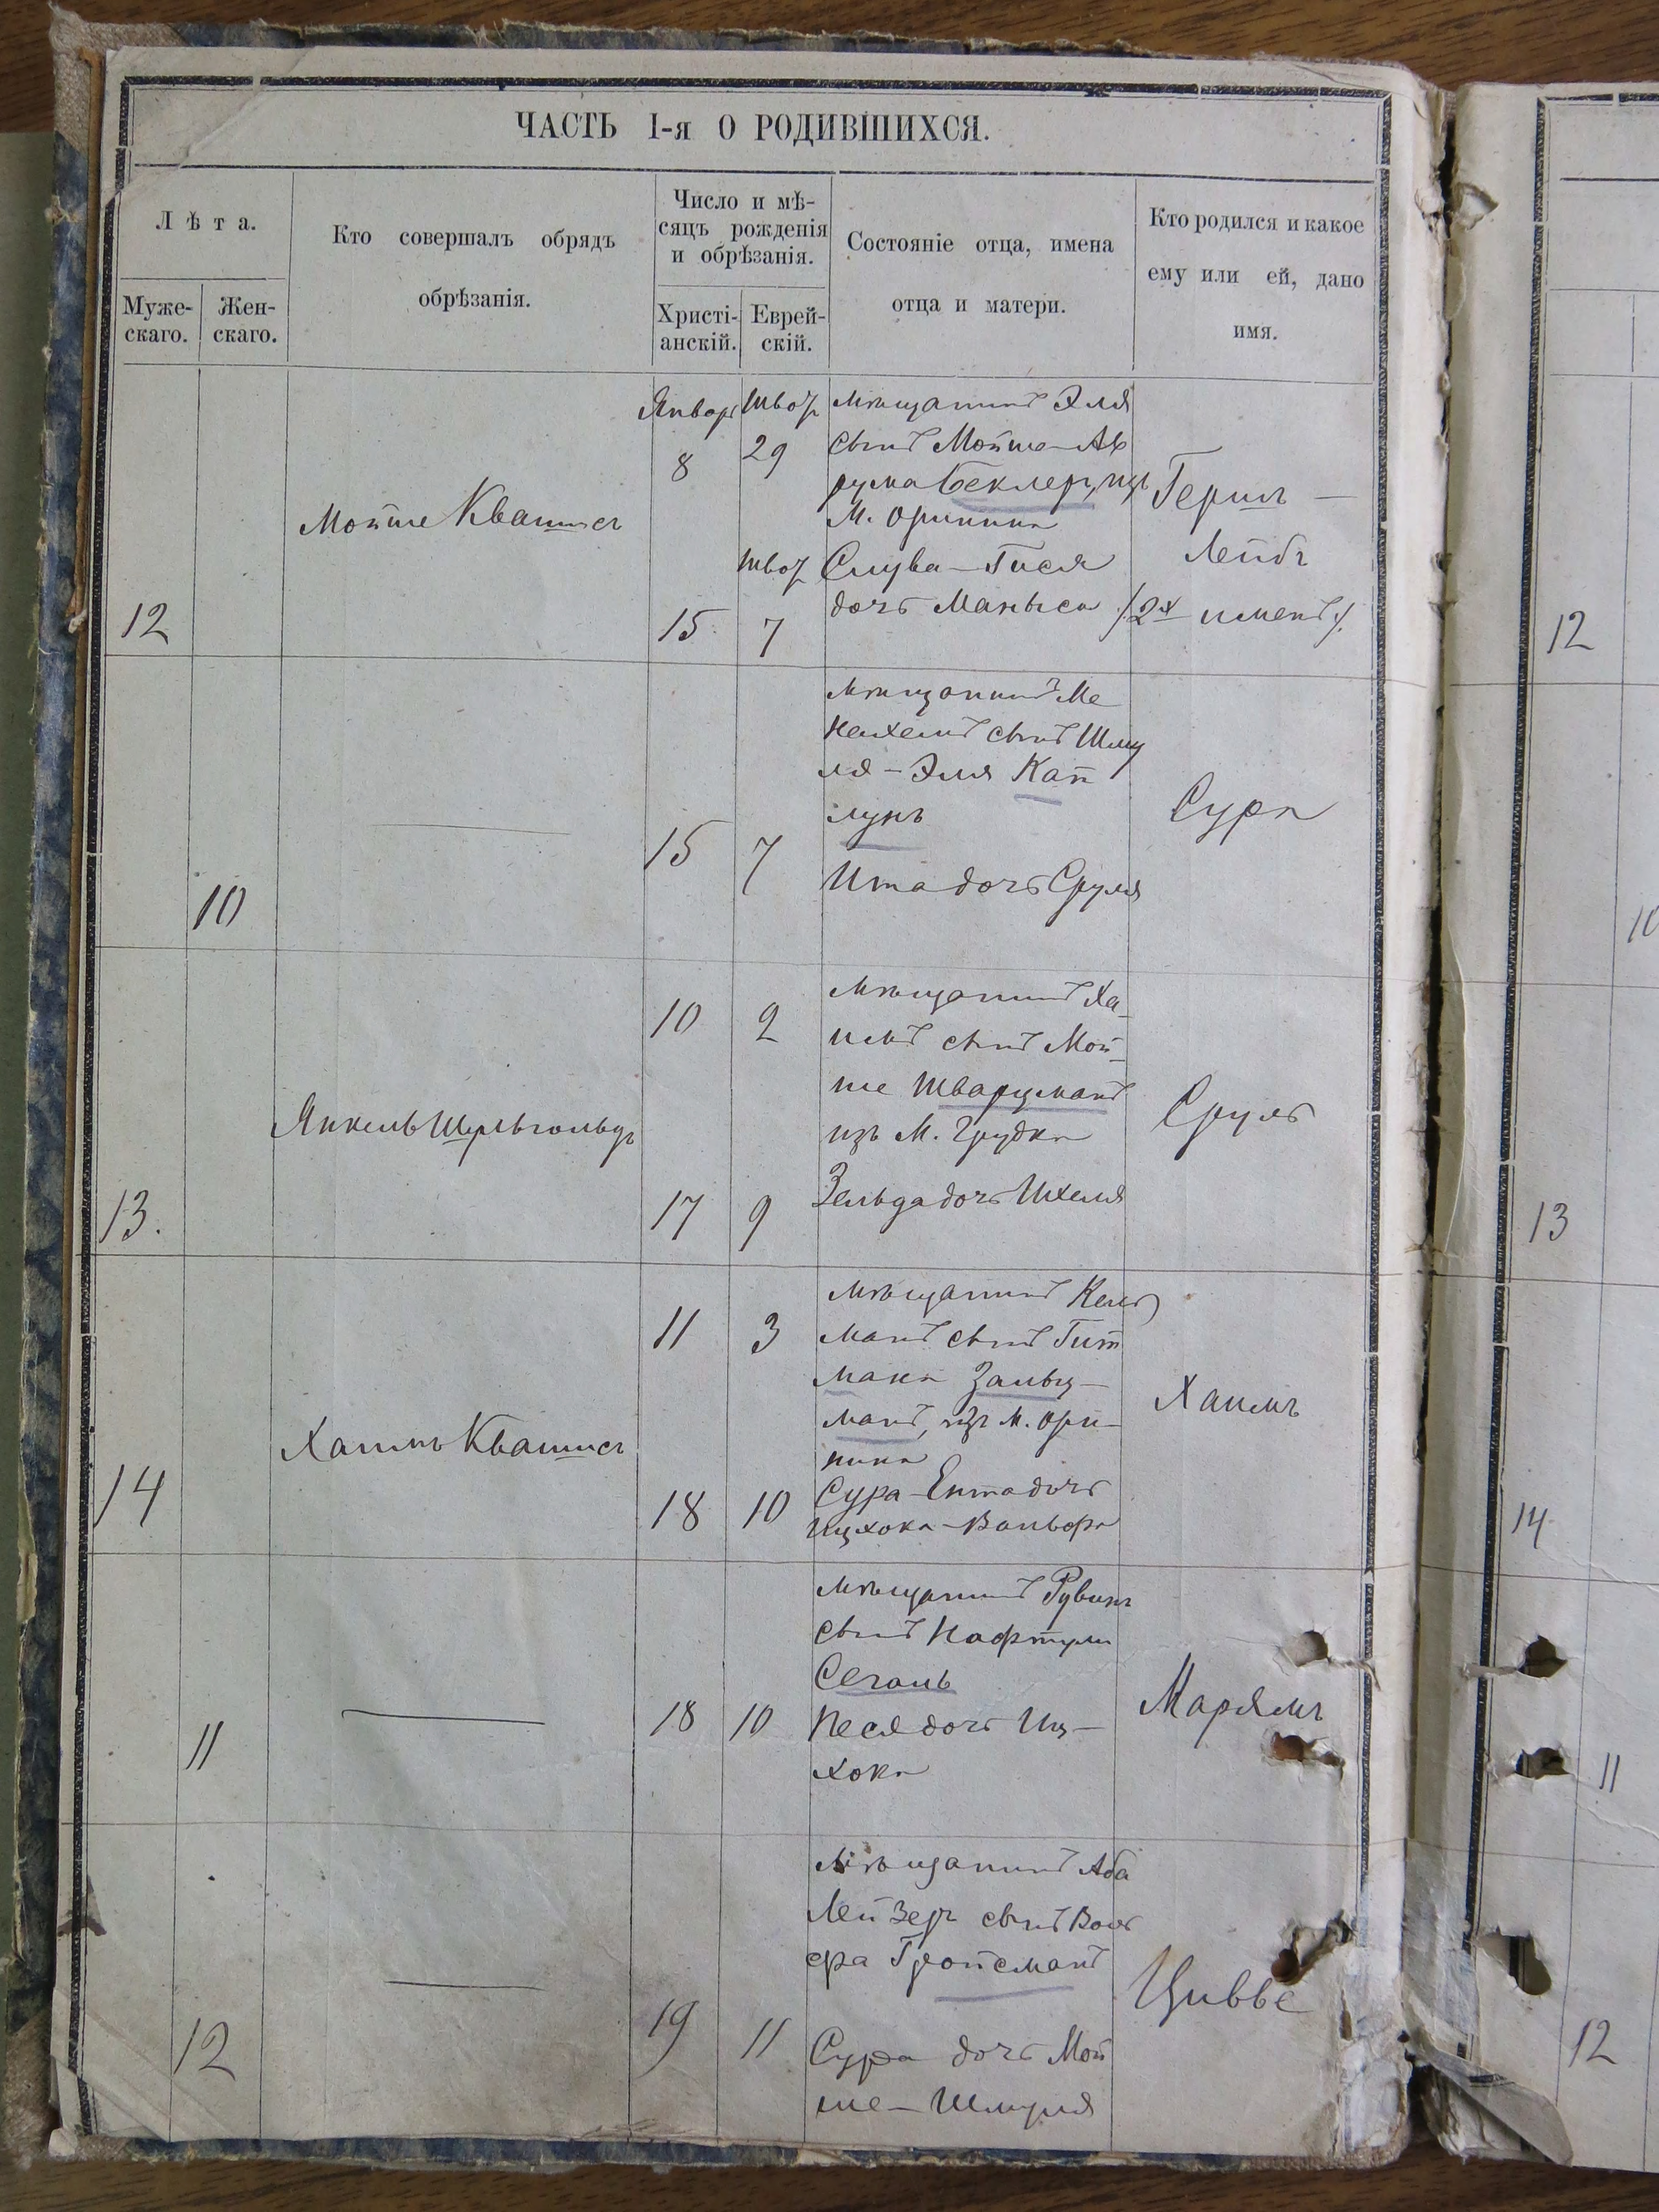 ЧАСТЬ I-я О РОДИВШИХСЯ.
Лѣта.
Муже-
скаго.
Жен-
скаго.
Кто совершалъ обрядъ
обрѣзанія.
Число и мѣ-
сяцъ рожденія
и обрѣзанія.
Христі-
анскій.
Еврей-
скій.
Состояніе отца, имена
отца и матери.
Кто родился и какое
ему или ей, дано
имя.
12
Мойше Квашисъ
Январ
8
15
29
7
мѣщанинъ Эля
сынъ Мойше-Ав
рума Беклеръ, изъ
М. Оринина
Слува-Гися
дочь Маныса
Гершъ —
Лейбъ
/2х именъ/.
12
10
15
7
мѣщанинъ Ме
нахемъ сынъ Шму
ля - Эля Кап
лунъ
Ита дочь Сруля
Сура
10
13.
Янкель Шерьгольдъ
10
17
2
9
мѣщанинъ Ха-
имъ сынъ Мой-
ше Шварцманъ
изъ М. Грудка
Зельда дочь Ихеля
Сруль
13
14
Хаимъ Квашисъ
11
18
3
10
мѣщанинъ Кель
манъ сынъ Гит
мана Зальц-
манъ, изъ М. Ори-
нина
Сура-Ента дочь
Ицхока-Вольфа
Хаимъ
14
11
18
10
мѣщанинъ Рувинъ
сынъ Нафтули
Сегаль
Песя дочь Иц-
хока
Марямъ
11
12
19
11
мѣщанинъ Аба
Лейзеръ сынъ Воль
фа Гройсманъ
Сура дочь Мой
ше - Шмуля
Цивье
12